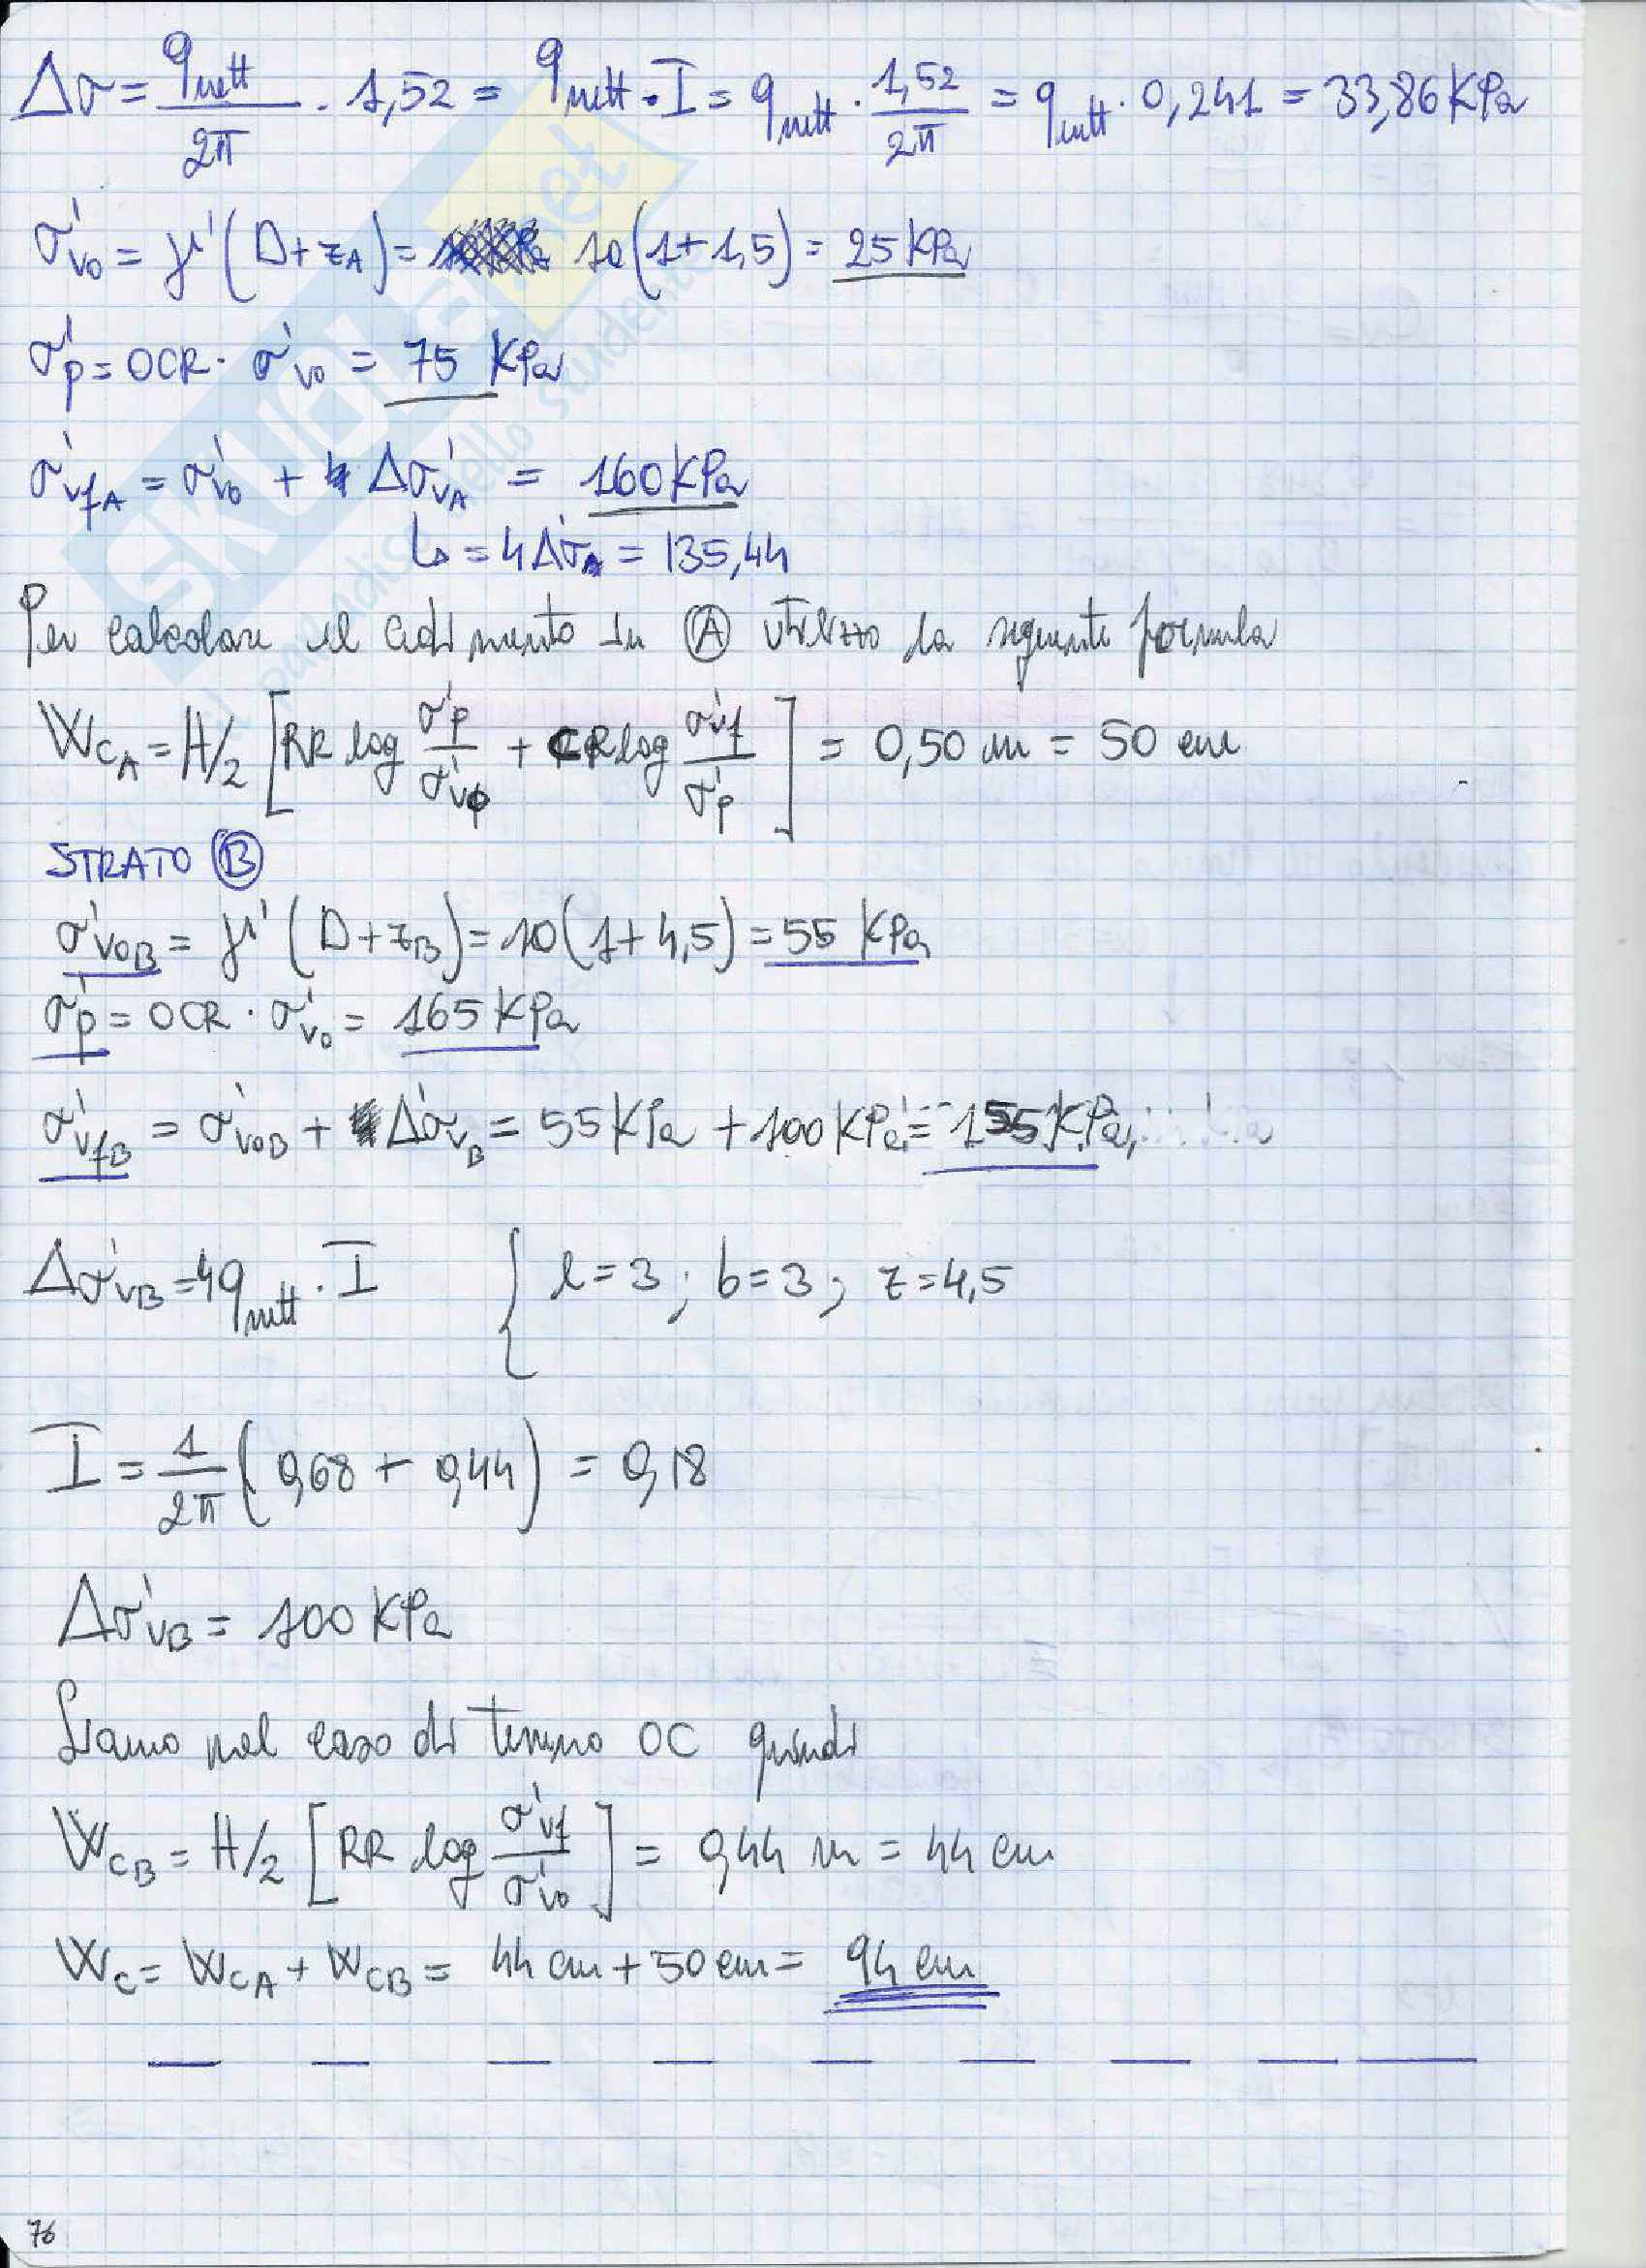 Δσ = qnett/2π · 1,52 = qnett · I = qnett · 1,52/2π = qnett · 0,241 = 33,86 KPa
σ'v0 = γ'(D+zA) = 10(1+1,5) = 25 KPa
σ'p = OCR · σ'v0 = 75 KPa
σ'vfA = σ'v0 + Δσ'vA = 160 KPa
↳ = 4Δσ'A = 135,44
Per calcolare il cedimento in Ⓐ utilizzo la seguente formula
WCA = H/2 [RR log σ'p/σ'v0 + CR log σ'vf/σ'p] = 0,50 m = 50 cm
STRATO Ⓑ
σ'v0B = γ'(D+zB) = 10(1+4,5) = 55 KPa
σ'p = OCR · σ'v0 = 165 KPa
σ'vfB = σ'v0B + Δσ'vB = 55 KPa + 100 KPa = 155 KPa
Δσ'vB = 4qnett · I { l=3; b=3; z=4,5
I = 1/2π (0,68 + 0,44) = 0,18
Δσ'vB = 100 KPa
Siamo nel caso di terreno OC quindi
WCB = H/2 [RR log σ'vf/σ'v0] = 0,44 m = 44 cm
WC = WCA + WCB = 44 cm + 50 cm = 94 cm
76
SKUOLA.net
il paradiso dello studente